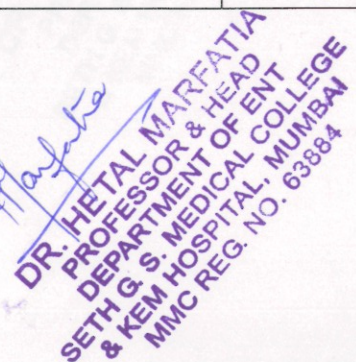 Marfatia
DR. HETAL MARFATIA
PROFESSOR & HEAD
DEPARTMENT OF ENT
SETH G. S. MEDICAL COLLEGE
& KEM HOSPITAL, MUMBAI
MMC REG. NO. 63884